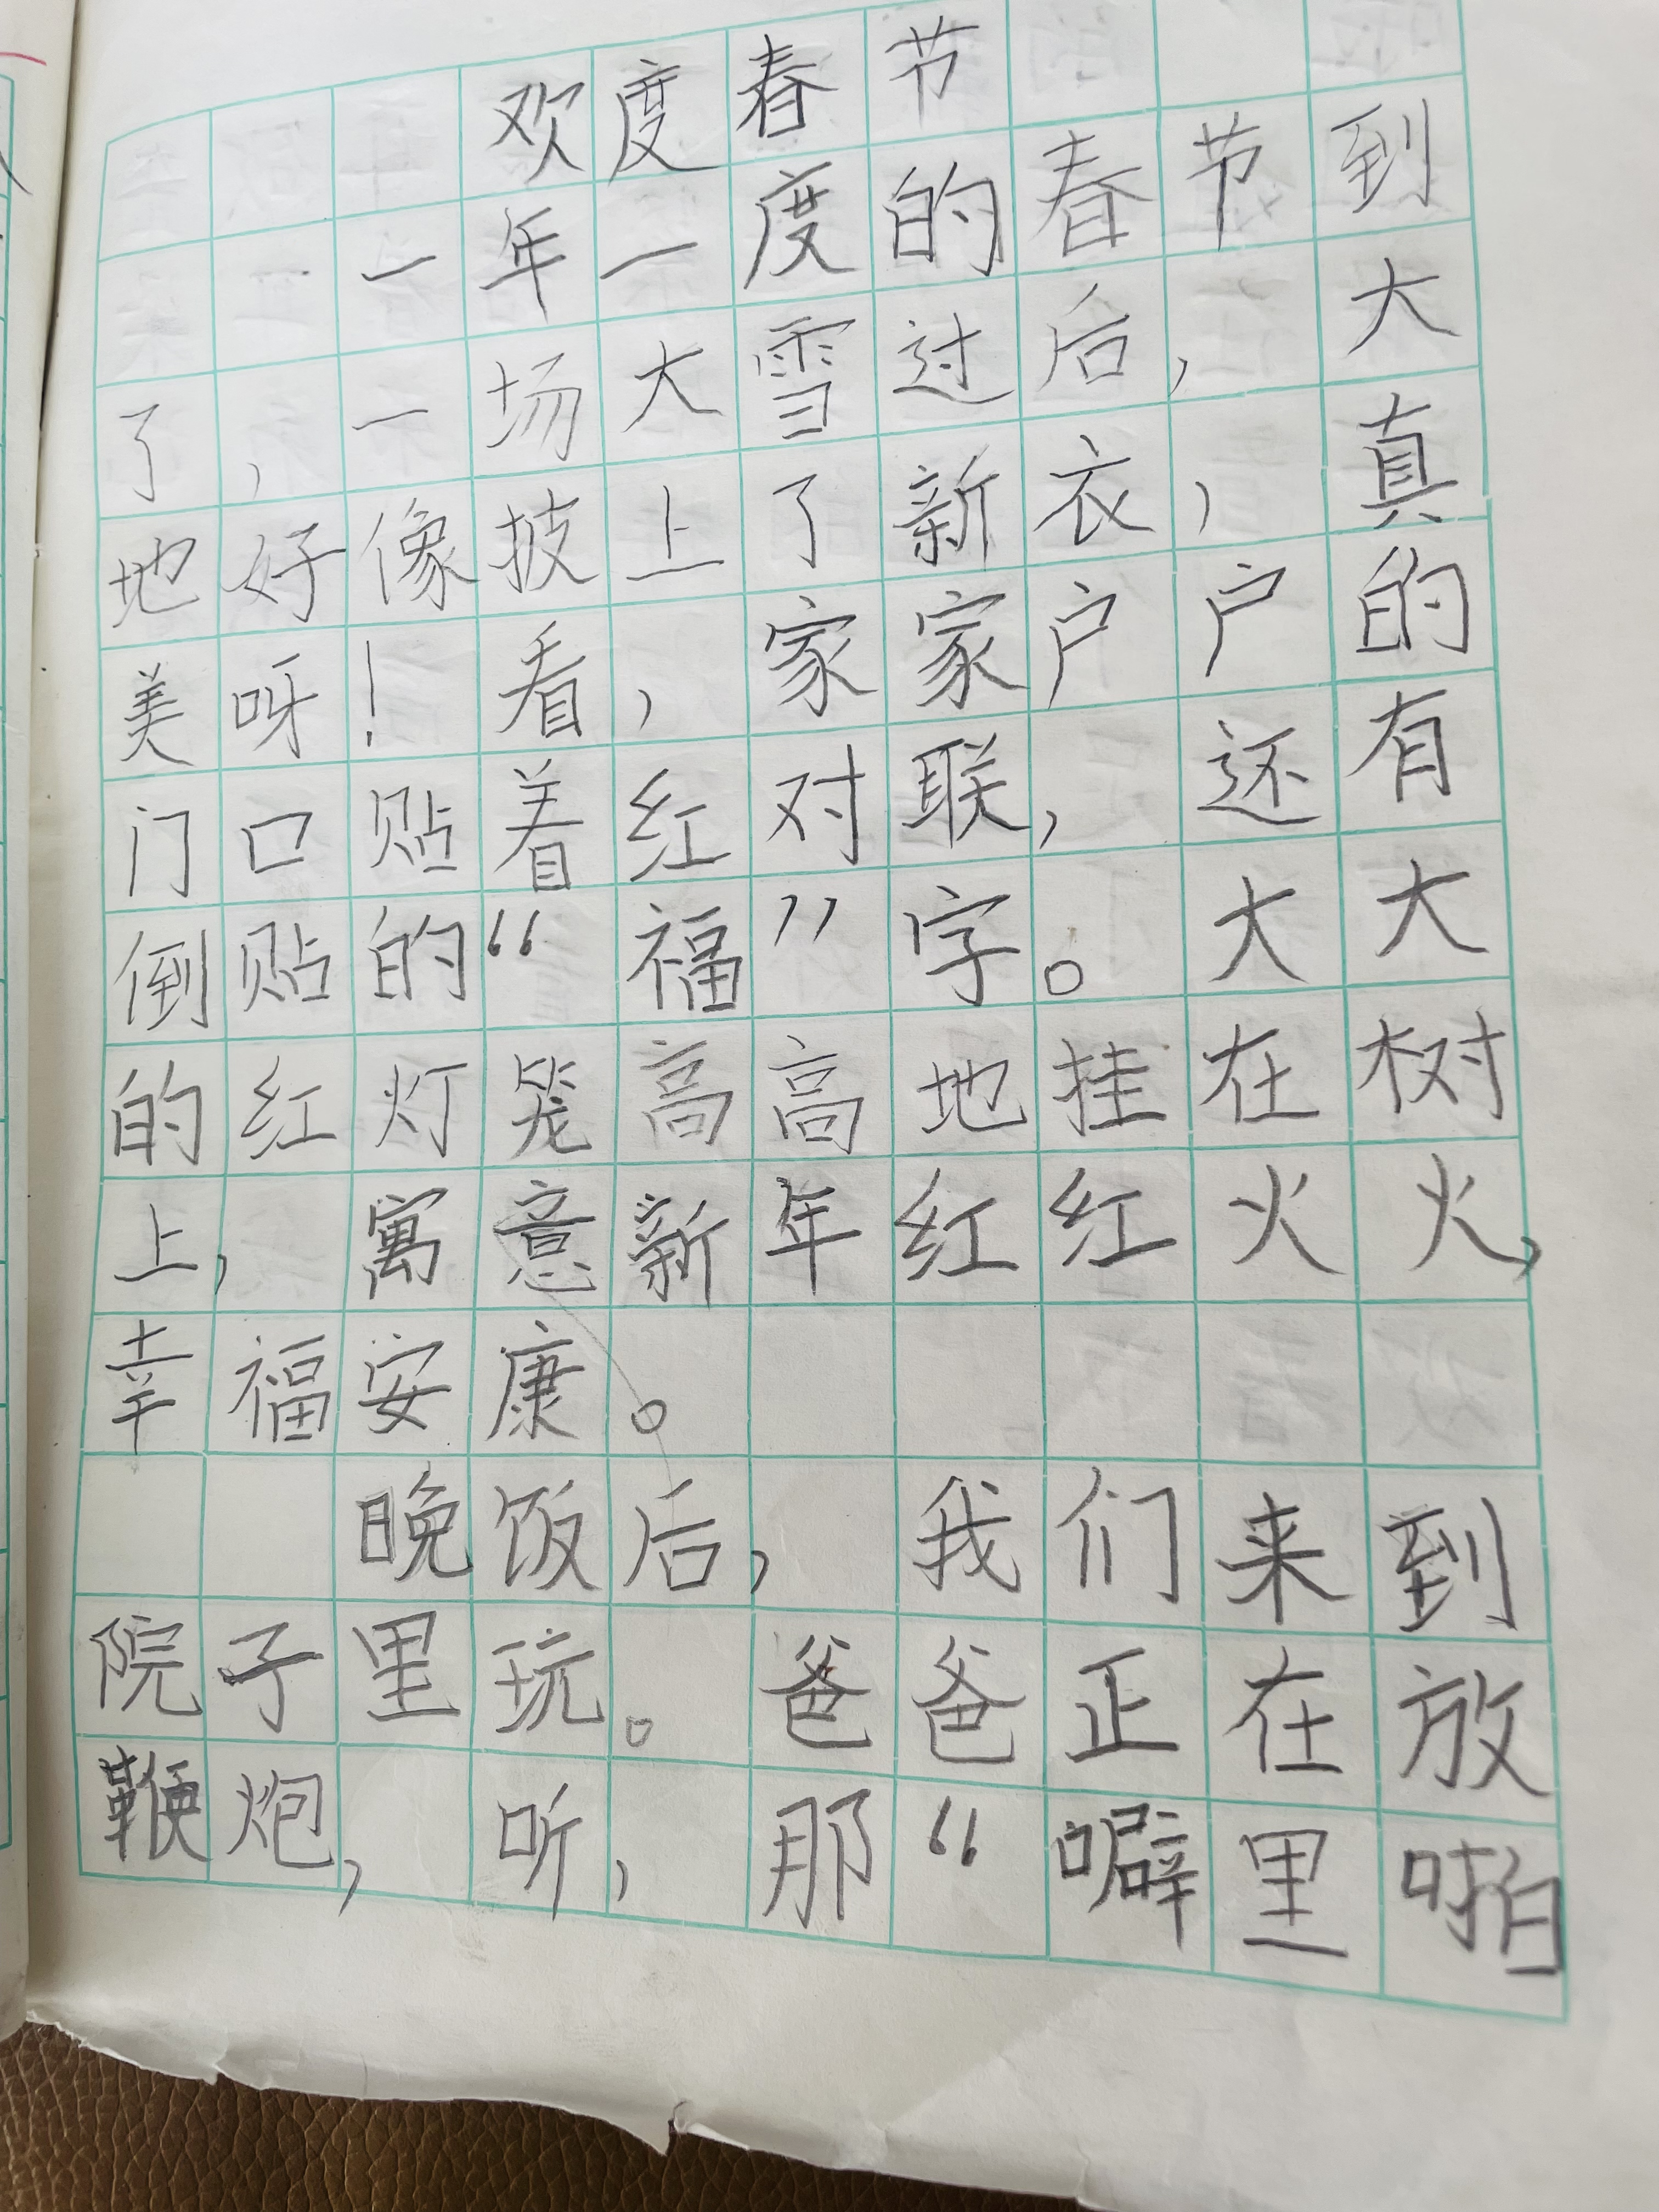 欢度春节
一年一度的春节到
了，一场大雪过后，大
地好像披上了新衣，真
美呀！看，家家户户的
门口贴着红对联，还有
倒贴的“福”字。大大
的红灯笼高高地挂在树
上，寓意新年红红火火，
幸福安康。
晚饭后，我们来到
院子里玩。爸爸正在放
鞭炮，听，那“噼里啪